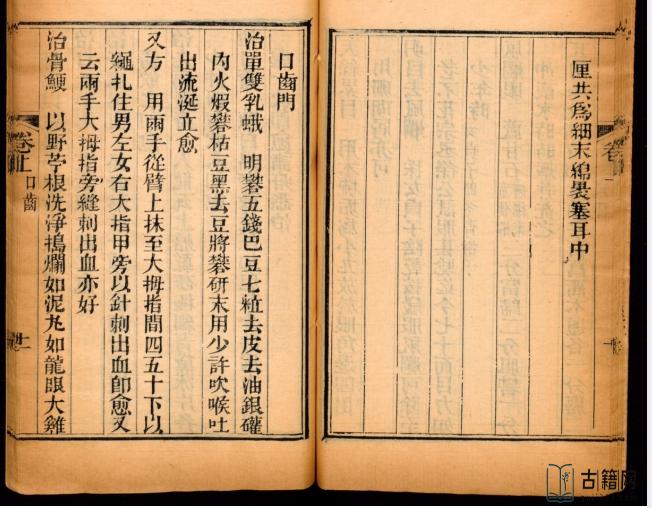 厘共為細末綿裹塞耳中
口齒門
治單雙乳蛾　明礬五錢巴豆七粒去皮去油銀礶
內火煆礬枯豆黑去豆將礬研末用少許吹喉吐
出流涎立愈
又方　用兩手從臂上抹至大拇指間四五十下以
繩扎住男左女右大指甲旁以針刺出血即愈又
云兩手大拇指旁縫刺出血亦好
治骨鯁　以野苧根洗淨搗爛如泥丸如龍眼大雞
口齒
十一
古籍网